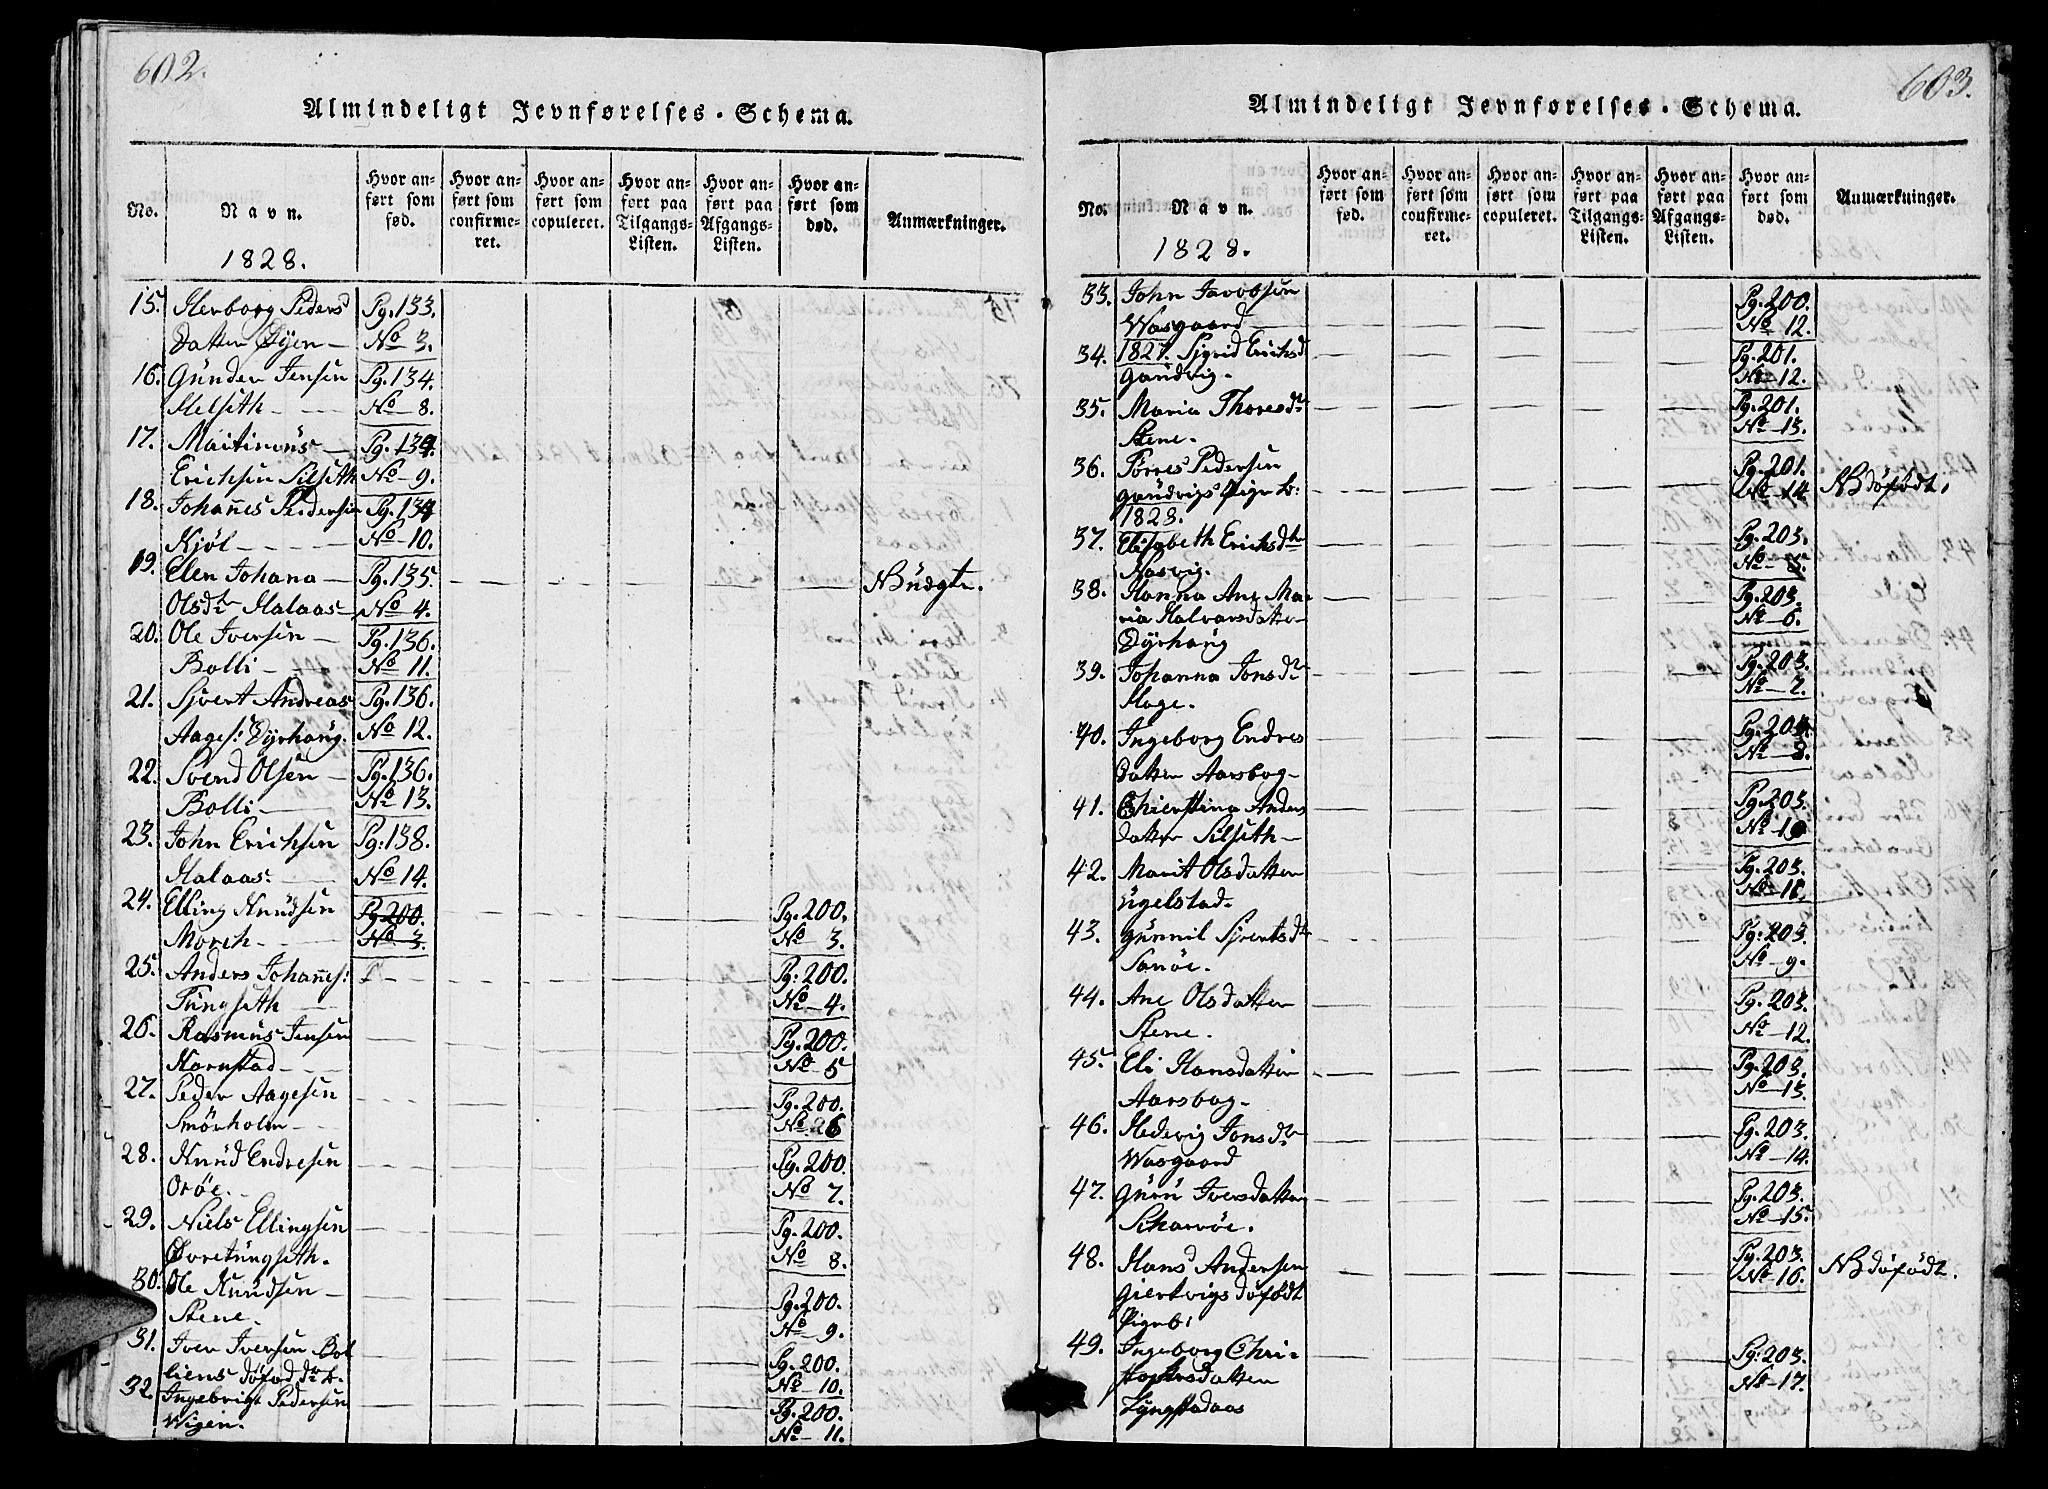 602.
Almindeligt Jevnførelses-Schema.
No.
Navn.
1828.
Hvor anført som fød.
Hvor anført som confirmeret.
Hvor anført som copuleret.
Hvor anført paa Tilgangs-Listen.
Hvor anført paa Afgangs-Listen.
Hvor anført som død.
Anmærkninger.
15. Herborg Peders Pg. 133.
Datter Øyen No 3.
16. Gunder Jensen Pg. 134.
Helseth No 8.
17. Martinus Pg. 134.
Erichsen Silseth No 9.
18. Johannes Pedersen Pg. 134
Kjöl No 10.
19. Elen Johana Pg. 135. NB uægte.
Olsdtr Halaas No 4.
20. Ole Iversen Pg. 136.
Bolli No 11.
21. Sjvert Andreas Pg. 136.
Aages: Dyrhaug. No 12.
22. Svend Olsen Pg. 136.
Bolli No 13.
23. John Erichsen Pg. 138.
Halaas No 14.
24. Elling Knudsen Pg. 200. Pg. 200.
Morch No 3. No 3.
25. Anders Johannes: Pg: 200.
Tungseth No 4.
26. Rasmus Jensen Pg. 200.
Hornstad No 5
27. Peder Aagesen Pg. 200.
Smörholm No 6
28. Knud Endresen Pg. 200.
Oröe. No 7.
29. Niels Ellingsen Pg. 200.
Øvretungseth. No 8.
30. Ole Knudsen Pg. 200.
Stene. No 9.
31. Iver Iversen Bol Pg. 200.
liens döfød dr b. No 10.
32. Ingebrigt Pedersen Pg. 200.
Wigen. No 11.
603.
Almindeligt Jevnførelses-Schema.
No.
Navn.
1828.
Hvor anført som fød.
Hvor anført som confirmeret.
Hvor anført som copuleret.
Hvor anført paa Tilgangs-Listen.
Hvor anført paa Afgangs-Listen.
Hvor anført som død.
Anmærkninger.
33. John Jacobsen Pg. 200.
Wasgaard No 12.
34. 1827. Sjgrid Erichsd Pg. 201.
Gaudvig. No 12.
35. Maria Thoresdr Pg. 201.
Stene. No 13.
36. Törres Pedersen Pg. 201.
Gaudvigs Pige b: No 14 NB döfödt.
1828.
37. Elisabeth Erichsdtr Pg. 203.
Nasvig. No 5.
38. Hanna Ane Ma- Pg. 203.
ria Halvarsdatter No 6.
Dyrhaug
39. Johanna Jonsdr Pg. 203.
Hage. No 7.
40. Ingeborg Endres Pg. 203.
datter Aarsbog No 8.
41. Chierstina Anders Pg. 203.
datter Silseth No 10
42. Marit Olsdatter Pg. 203.
Ugelstad. No 11.
43. Gunnil Sjvertsdr Pg: 203.
Sanöe. No 9.
44. Ane Olsdatter Pg. 203.
Stene. No 12.
45. Eli Hansdatter Pg. 203.
Aarsbog No 13.
46. Hedevig Jonsdr Pg. 203.
Wasgaard No 14.
47. Guru Iversdatter Pg. 203.
Scharvöe. No 15.
48. Hans Andersen Pg. 203.
Giertvigs döfödt No 16. NB döfödt.
Pigeb:
49. Ingeborg Chri- Pg: 203.
stophersdatter No 17.
Lyngstadaas